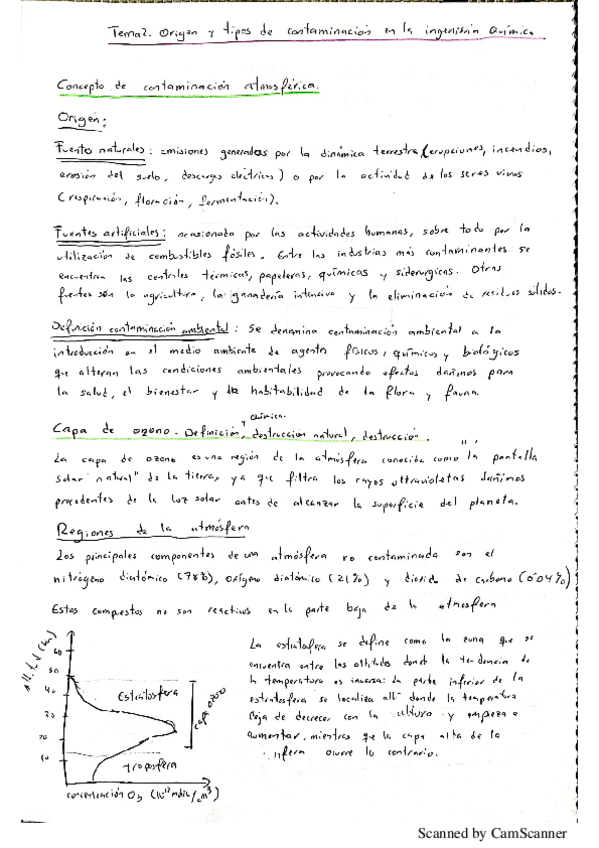 Tema 2. Origen y tipos de contaminación en la ingeniería Química
Concepto de contaminación atmosférica.
Origen:
Fuente naturales: emisiones generadas por la dinámica terrestre (erupciones, incendios,
erosión del suelo, descargas eléctricas) o por la actividad de los seres vivos
(respiración, floración, fermentación).
Fuentes artificiales: ocasionada por las actividades humanas, sobre todo por la
utilización de combustibles fósiles. Entre las industrias más contaminantes se
encuentran las centrales térmicas, papeleras, químicas y siderurgicas. Otras
fuentes son la agricultura, la ganadería intensiva y la eliminación de residuos sólidos.
Definición contaminación ambiental: Se denomina contaminación ambiental a la
introducción en el medio ambiente de agentes físicos, químicos y biológicos
que alteran las condiciones ambientales provocando efectos dañinos para
la salud, el bienestar y la habitabilidad de la flora y fauna.
Capa de ozono. Definición, destrucción natural, destrucción.
y química.
La capa de ozono es una región de la atmósfera conocida como la "pantalla
solar natural" de la tierra, ya que filtra los rayos ultravioletas dañinos
procedentes de la luz solar antes de alcanzar la superficie del planeta.
Regiones de la atmósfera
Los principales componentes de una atmósfera no contaminada son el
nitrógeno diatómico (78%), oxígeno diatómico (21%) y dioxido de carbono (0'04%)
Estos compuestos no son reactivos en la parte baja de la atmosfera
altitud (km)
60
50
40
30
20
10
Estratosfera
capa ozono
troposfera
concentración O3 (10¹² molec/cm³)
La estratosfera se define como la zona que se
encuentra entre las altitudes donde la tendencia de
la temperatura es inversa: la parte inferior de la
estratosfera se localiza allí donde la temperatura
deja de decrecer con la altura y empieza a
aumentar, mientras que la capa alta de la
ocurre lo contrario.
Scanned by CamScanner